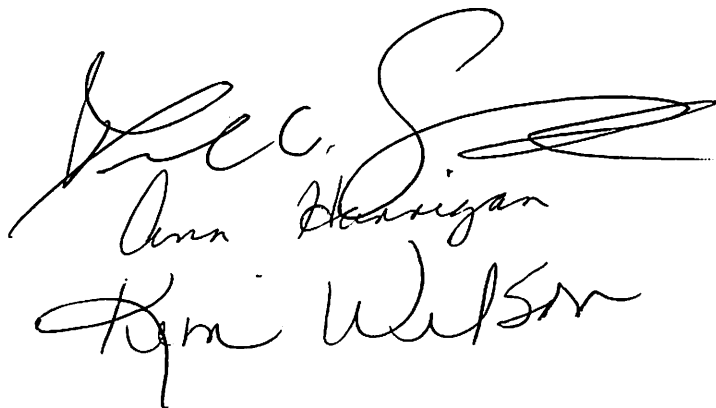 C.
Ann Hannigan
Kim Wilson